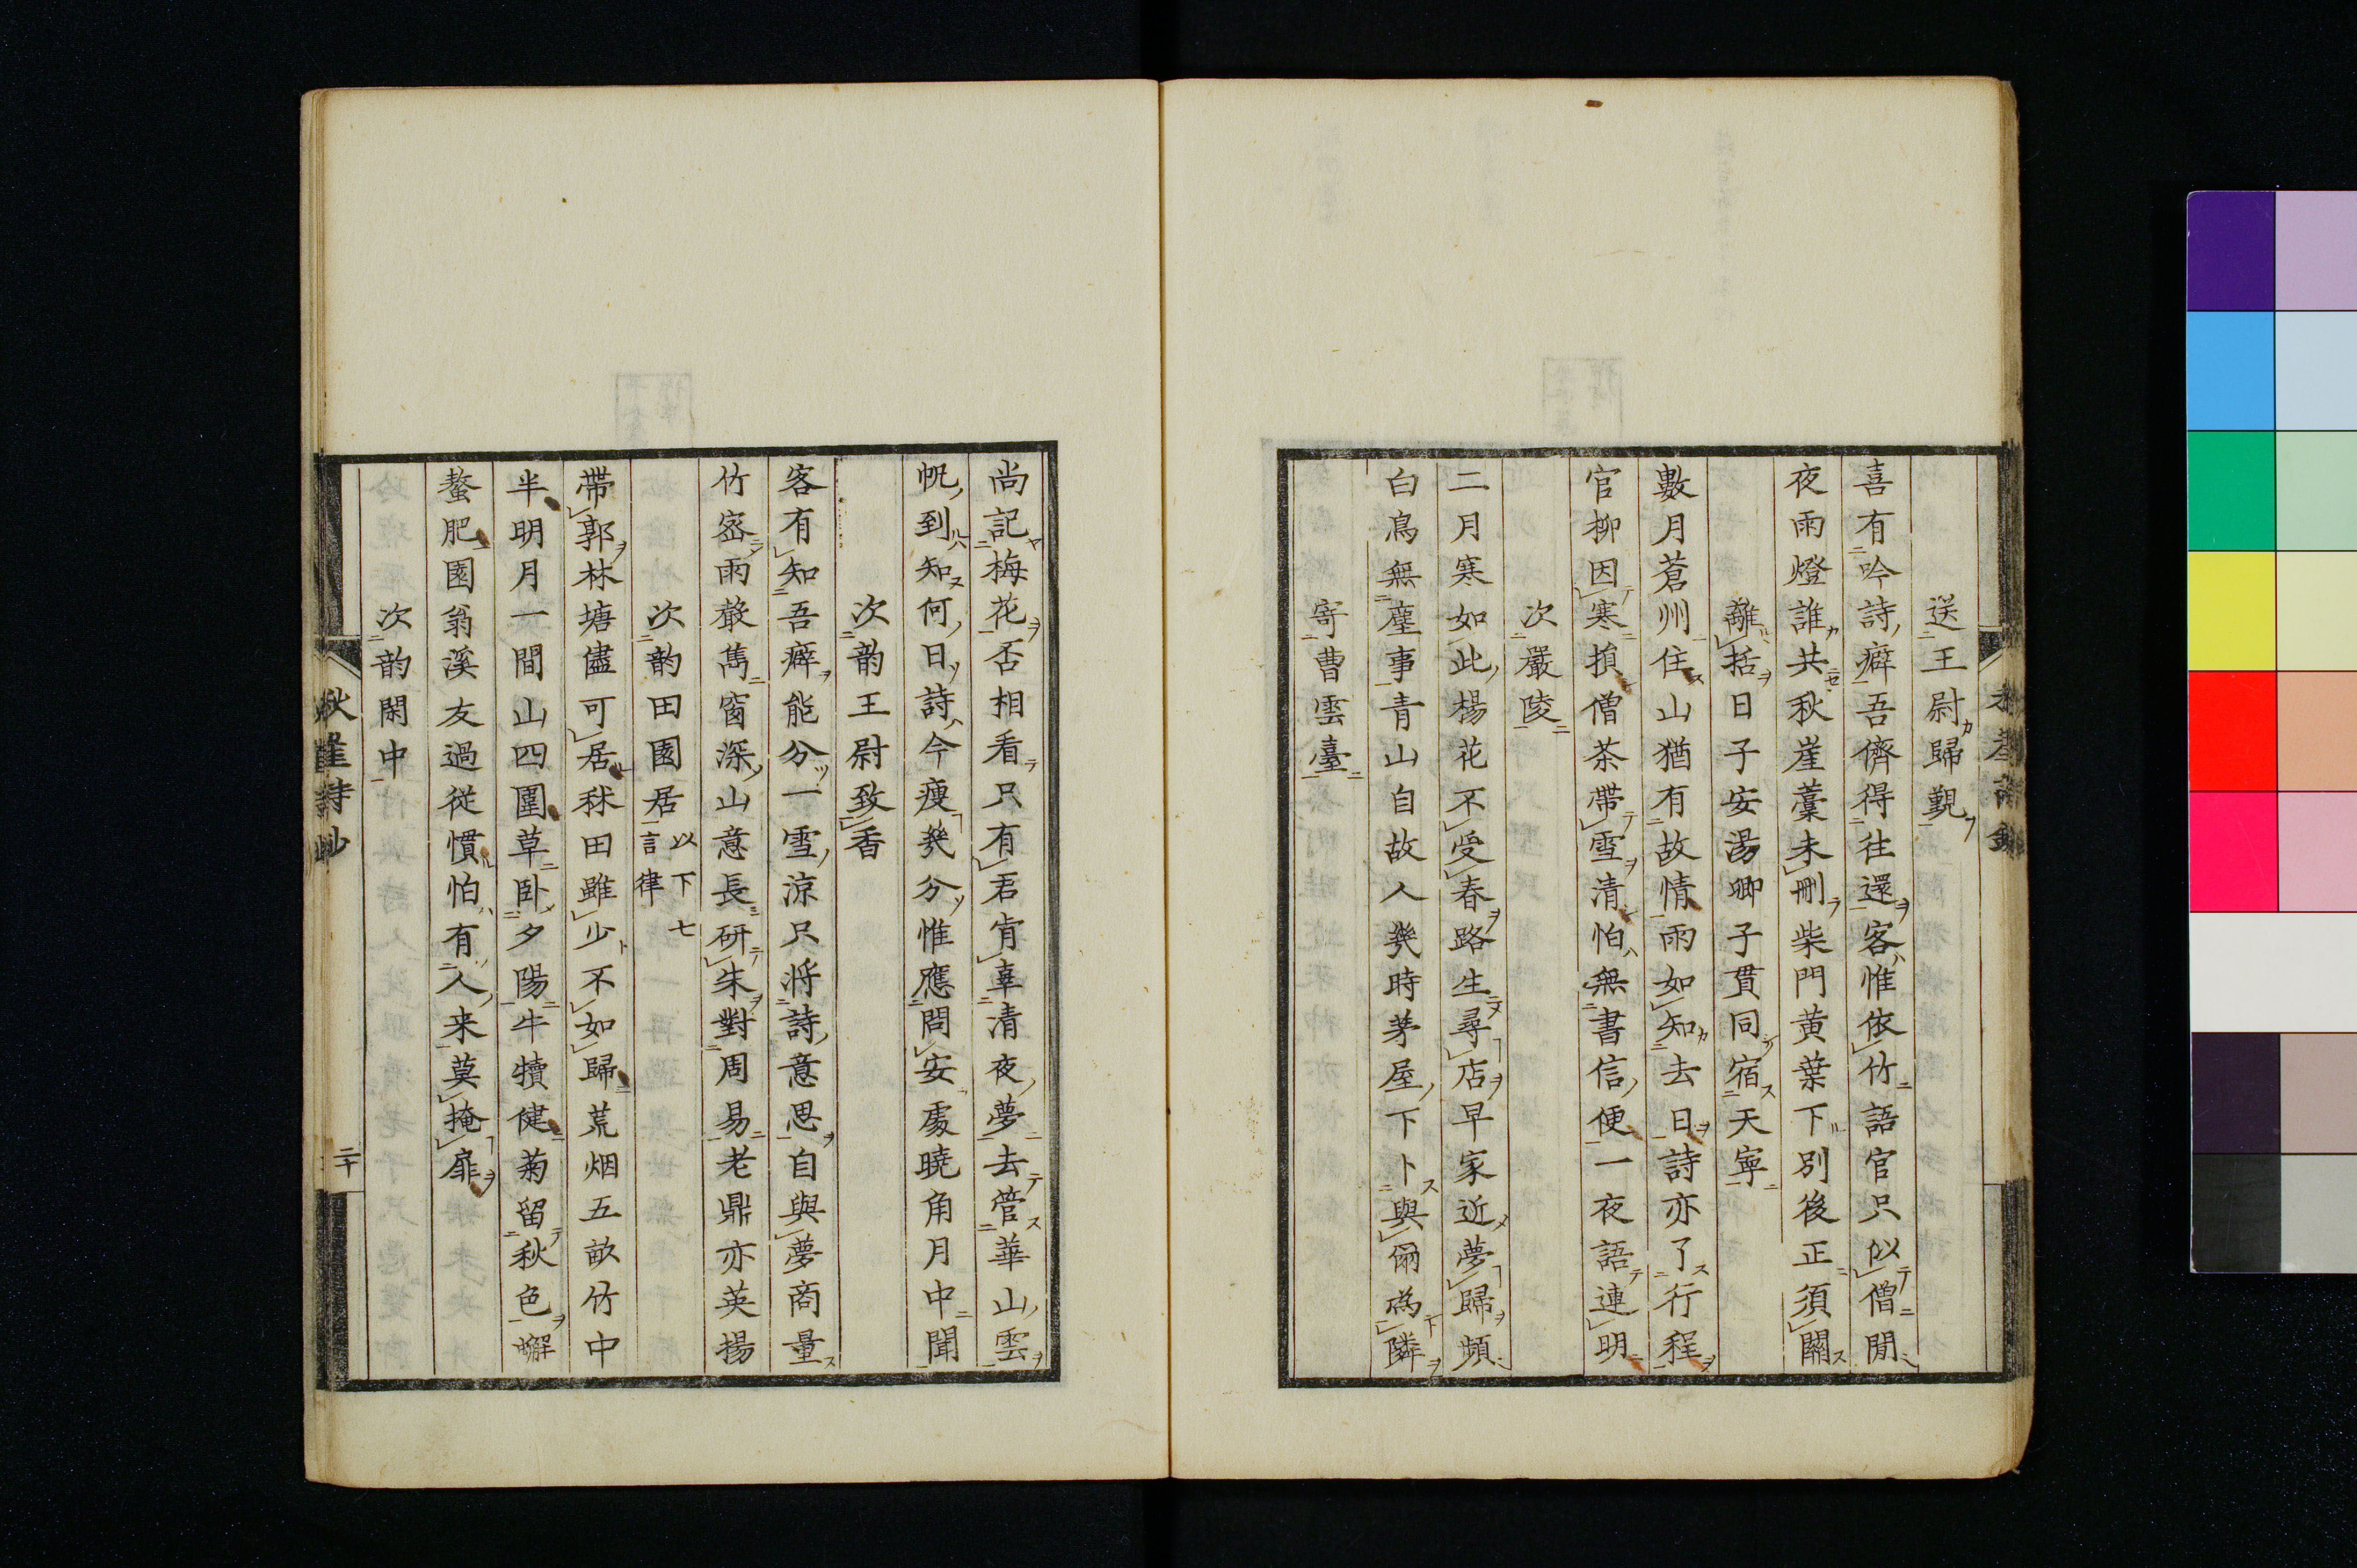 送王尉歸覲
喜有吟詩癖吾儕得往還客惟依竹語官只似僧閒
夜雨燈誰共秋崖藁未刪柴門黄葉下別後正須關
離括日子安湯卿子貫同宿天寧
數月蒼州住山猶有故情雨如知去日詩亦了行程
官柳因寒損僧茶帶雪清怕無書信便一夜語連明
次嚴陵
二月寒如此楊花不受春路生尋店早家近夢歸頻
白鳥無塵事青山自故人幾時茅屋下卜與爾為隣
寄曹雲臺
尚記梅花否相看只有君肯辜清夜夢去管華山雲
帆到知何日詩今瘦幾分惟應問安處曉角月中聞
次韵王尉致香
客有知吾癖能分一雪涼只将詩意思自與夢商量
竹宻雨聲雋窗深山意長研朱對周易老鼎亦英揚
次韵田園居 以下七言律
帶郭林塘儘可居秫田雖少不如歸荒烟五畝竹中
半明月一間山四圍草卧夕陽牛犢健菊留秋色蠏
螯肥園翁溪友過從慣怕有人来莫掩扉
次韵閑中
秋崖詩鈔
二十